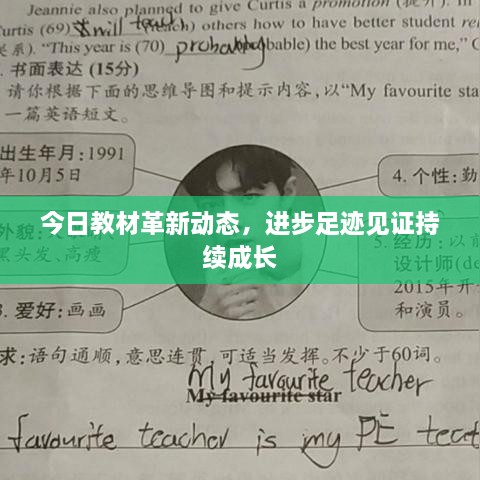 Jeannie also planned to give Curtis a promotion (提升). In
Curtis (69) will teach (teach) others how to have better student rel
关系). "This year is (70) probably (probable) the best year for me," C
. 书面表达 (15分)
请你根据下面的思维导图和提示内容,以"My favourite sta
一篇英语短文。
出生年月:1991
年10月5日
4. 个性:勤
今日教材革新动态,进步足迹见证持
续成长
外貌:
黑头发、高瘦
5. 经历:以前
设计师(de
2015年开
和演员。
3. 爱好:画画
求:语句通顺,意思连贯,可适当发挥。不少于60词。
My favourite teacher
My favourite star
favourite teacher is my PE teac